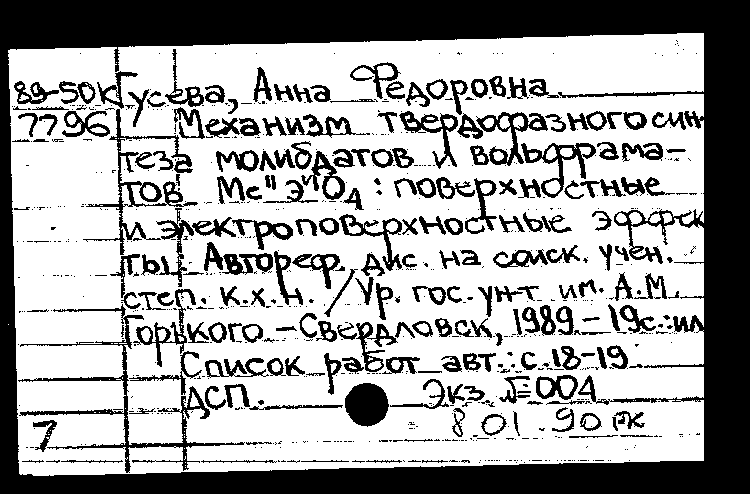 89-50К Гусева, Анна Федоровна.
7796 Механизм твердофазного син-
теза молибдатов и вольфрама-
тов MeᴵᴵЭⱽᴵO₄ : поверхностные
и электроповерхностные эффек
ты : Автореф. дис. на соиск. учен.
степ. к.х.н. / Ур. гос. ун-т им. А.М.
Горького. - Свердловск, 1989. - 19с.:ил
Список работ авт.: с.18-19.
ДСП. Экз. №004
7 8 01.90